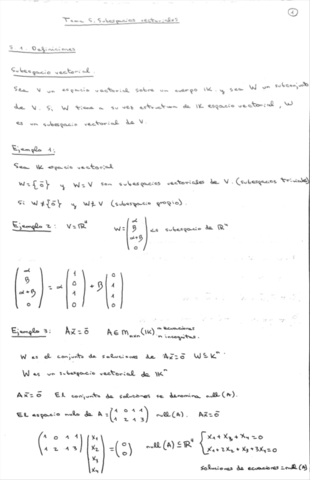 1
Tema 5. Subespacios vectoriales
5.1. Definiciones
Subespacio vectorial.
Sea V un espacio vectorial sobre un cuerpo IK y sea W un subconjunto
de V. Si W tiene a su vez estructura de IK espacio vectorial, W
es un subespacio vectorial de V.
Ejemplo 1:
Sea IK espacio vectorial
W={ō} y W=V son subespacios vectoriales de V. (subespacios triviales)
Si W≠{ō} y W≠V (subespacio propio).
Ejemplo 2: V=ℝ⁴ W=(α β α+β 0) es subespacio de ℝ
(α β α+β 0) = α (1 0 1 0) + β (0 1 1 0)
Ejemplo 3: Ax̄=ō A∈M (IK) m ecuaciones
n incognitas.
W es el conjunto de soluciones de Ax̄=ō W⊆Kⁿ
W es un subespacio vectorial de IKⁿ
Ax̄=ō El conjunto de soluciones se denomina null(A).
El espacio nulo de A=(1 0 1 1 / 1 2 1 3) null(A). Ax̄=ō
(1 0 1 1 / 1 2 1 3) (x₁ x₂ x₃ x₄) = (0 0) null(A)⊆ℝ⁴ { x₁+x₃+x₄=0
x₁+2x₂+x₃+3x₄=0
soluciones de ecuaciones=null(A)